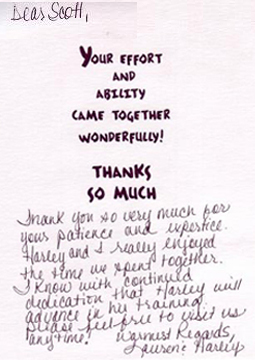 Dear Scott,
YOUR EFFORT
AND
ABILITY
CAME TOGETHER
WONDERFULLY!
THANKS
SO MUCH
Thank you so very much for
your patience and expertice.
Harley and I really enjoyed
the time we spent together.
I know with continued
dedication that Harley will
advance in his training.
Please feel free to visit us
anytime! Warmest Regards,
Lauren & Harley